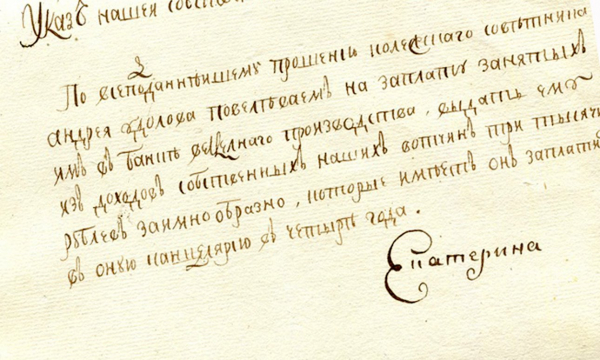 Указъ нашей собст
По всеподаннѣйшему прошенію колежскаго совѣтника
андрея удолова повелѣваемъ на заплату занятыхъ
имъ въ банкѣ вексельнаго производства, выдать ему
изъ доходовъ собственныхъ нашихъ вотчинъ три тысячи
рублевъ заимнообразно, которые имѣетъ онъ заплатить
въ оную канцелярію въ четыре года.
Екатерина